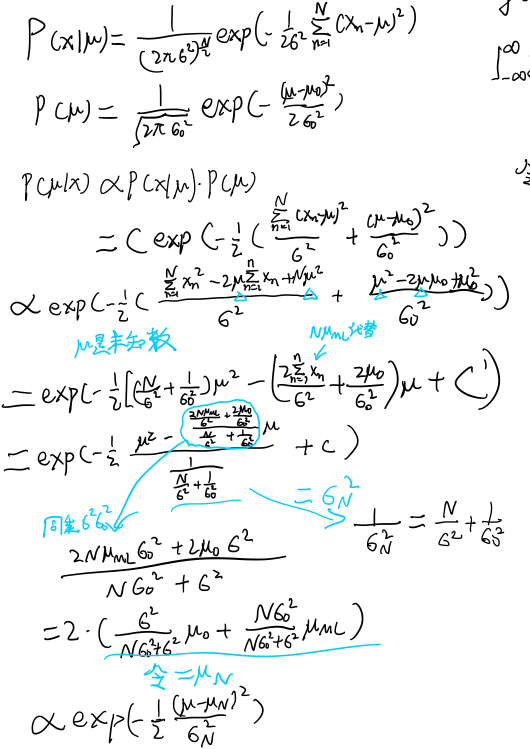 P(x|μ) = \frac{1}{(2π6²)^{\frac{N}{2}}} exp(-\frac{1}{26²} \sum_{n=1}^{N} (x_n-μ)²)
P(μ) = \frac{1}{\sqrt{2π6_0²}} exp(-\frac{(μ-μ_0)²}{26_0²})
P(μ|x) ∝ P(x|μ)·P(μ)
= C exp(-\frac{1}{2}(\frac{\sum_{n=1}^{N}(x_n-μ)²}{6²} + \frac{(μ-μ_0)²}{6_0²}))
∝ exp(-\frac{1}{2}(\frac{\sum_{n=1}^{N} x_n² - 2μ\sum_{n=1}^{n} x_n + Nμ²}{6²} + \frac{μ² - 2μμ_0 + μ_0²}{6_0²}))
μ是未知数
Nμ_{mL}代替
= exp(-\frac{1}{2}[(\frac{N}{6²} + \frac{1}{6_0²})μ² - (\frac{2\sum_{n=1}^{n} x_n}{6²} + \frac{2μ_0}{6_0²})μ + C'
= exp(-\frac{1}{2} \frac{μ² - \frac{\frac{2Nμ_{mL}}{6²} + \frac{2μ_0}{6_0²}}{\frac{N}{6²} + \frac{1}{6_0²}} μ}{\frac{1}{\frac{N}{6²} + \frac{1}{6_0²}}} + c)
= 6_N²
同乘6²6_0²
\frac{1}{6_N²} = \frac{N}{6²} + \frac{1}{6_0²}
\frac{2Nμ_{mL}6_0² + 2μ_0 6²}{N6_0² + 6²}
= 2·(\frac{6²}{N6_0²+6²} μ_0 + \frac{N6_0²}{N6_0²+6²} μ_{mL})
令 = μ_N
∝ exp(-\frac{1}{2} \frac{(μ-μ_N)²}{6_N²})